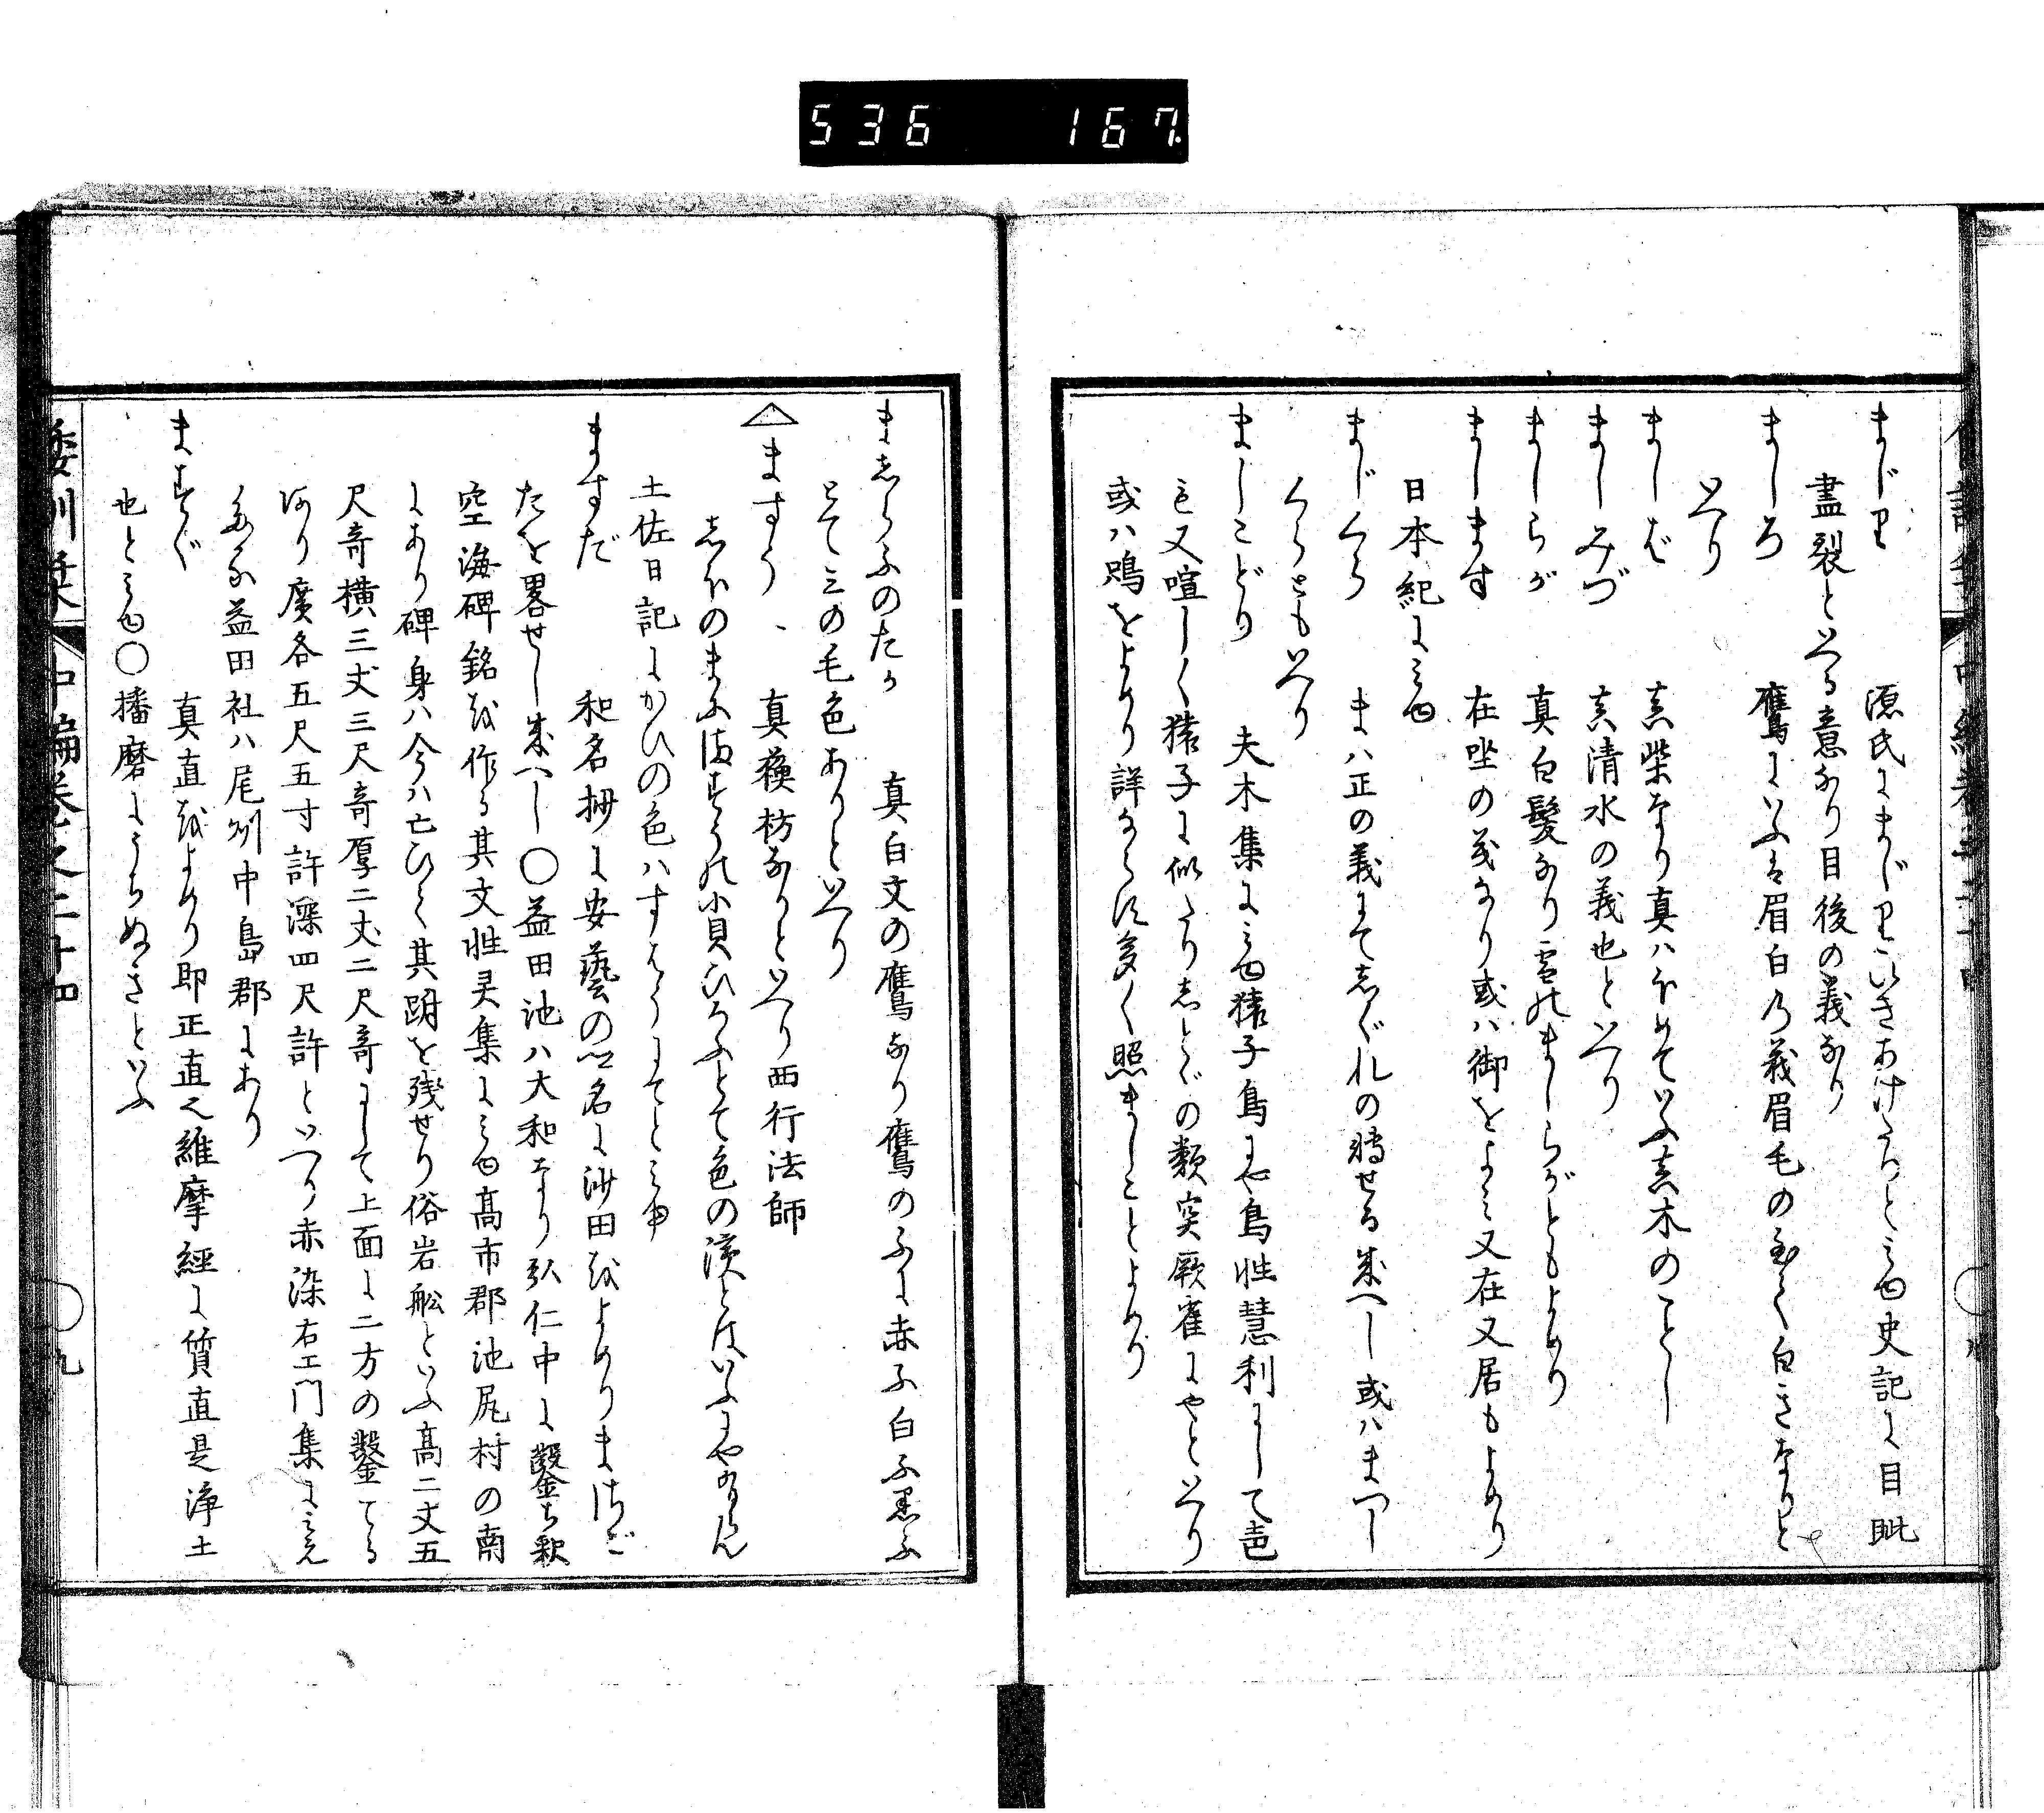 536 167
まじり 源氏にまじりこいきあけたちとみゆ史記に目眦
盡裂といへる意なり目後の義なり
ましろ 鷹にいふは眉白の義眉毛の至て白きなりと
いへり
ましば 真柴なり真ハほめていふ真木のことし
ましみづ 真清水の義也といへり
ましらが 真白髪なり雪のましらがともよめり
まします 在坐の義なり或ハ御をよみ又在又居もよめり
日本紀にみゆ
まじくら まハ正の義にてしぐれの轉せる成へし或ハまつし
くらともいへり
ましこどり 夫木集にみゆ猿子鳥にや鳥性慧利にして色
も又喧しく猿子に似たりしとゞの類突厥雀にやといへり
或ハ鳴をよめり詳ならす多く照ましことよめり
ましらふのたか 真白文の鷹なり鷹のふに赤ふ白ふ黒ふ
とて三の毛色ありといへり
△ますう 真蘇枋なりといへり西行法師
しほのまふますうの小貝ひろふとて色の濱とはいふにやあるらん
土佐日記にかひの色ハすはうにてとみゆ
ますだ 和名抄に安藝の郷名に沙田をよめりまさご
たを畧せし成へし○益田池ハ大和なり弘仁中に鑿ち釈
空海碑銘を作る其文性灵集にみゆ高市郡池尻村の南
にあり碑身ハ今ハ亡ひて其趺を残せり俗岩舩といふ高二丈五
尺奇横三丈三尺奇厚二丈二尺奇にして上面に二方の鑿てる
あり廣各五尺五寸許深四尺許といへり赤染右エ門集にみえ
たる益田社ハ尾州中島郡にあり
ますぐ 真直をよめり即正直也維摩經に質直是浄土
也とみゆ○播磨にうちぬきといふ
倭訓栞 中編巻之二十四 九